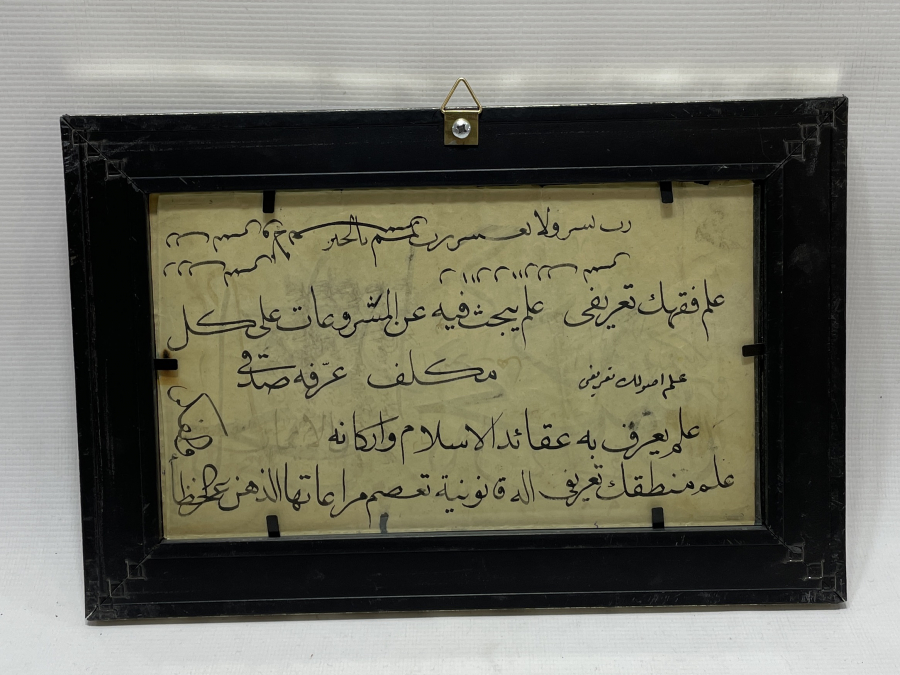 رب يسر ولا تعسر رب تمم بالخير
علم فقهك تعريفى علم يبحث فيه عن المشروعات على كل
مكلف عرفه صدقى
علم اصولك تعريفى
علم يعرف به عقائد الاسلام واركانه
علم منطقك تعريفى اله قانونية تعصم مراعاتها الذهن عن الخطأ